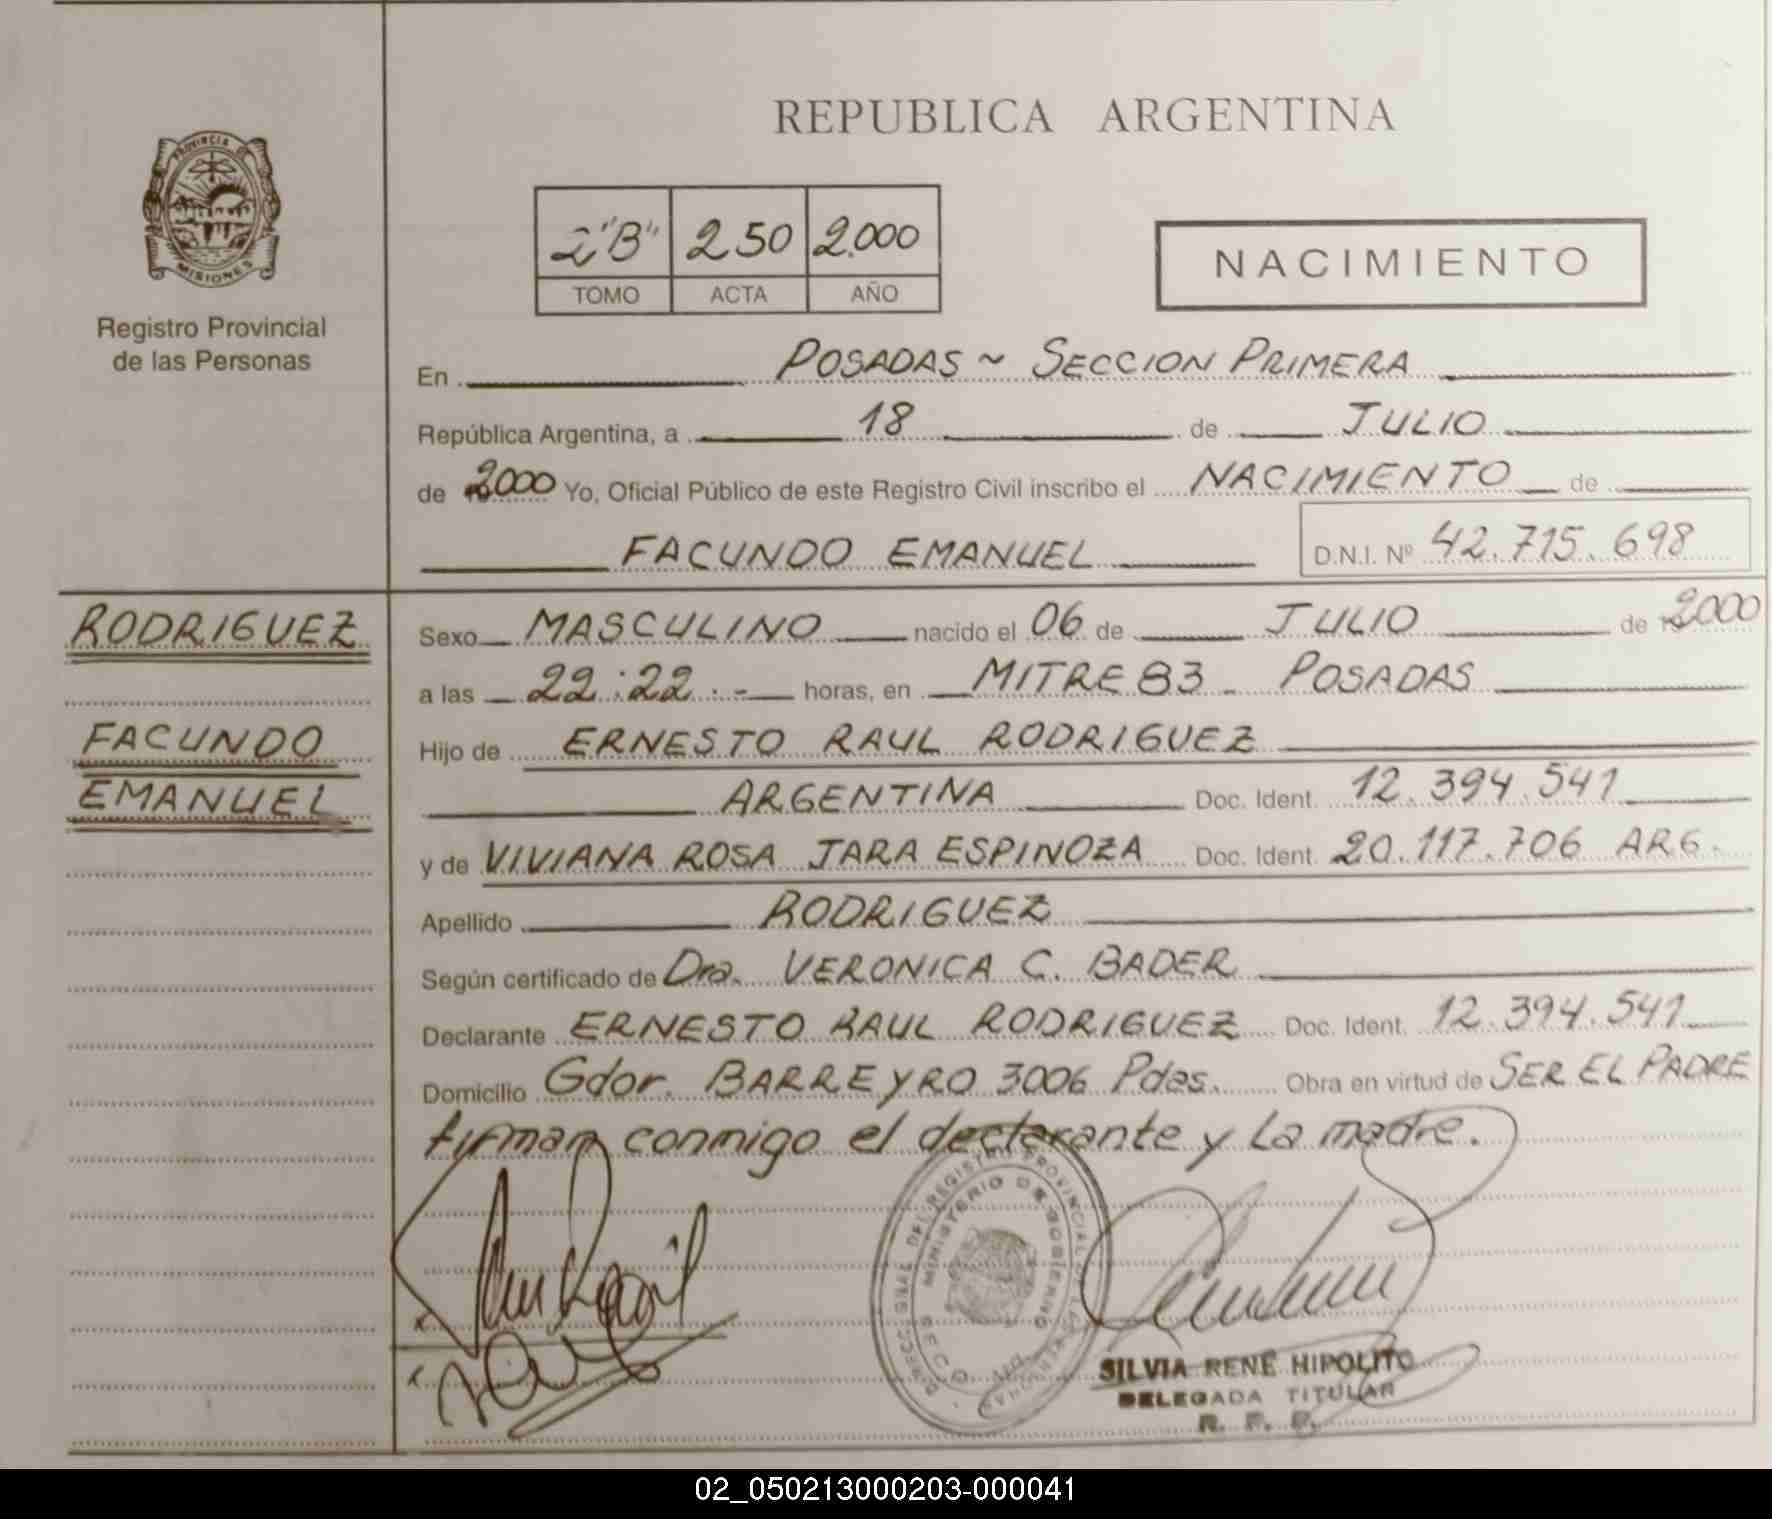 REPUBLICA ARGENTINA
PROVINCIA DE
MISIONES
Registro Provincial
de las Personas
2 "B" 250 2.000
TOMO ACTA AÑO
NACIMIENTO
En POSADAS ~ SECCION PRIMERA
República Argentina, a 18 de JULIO
de 2000 Yo, Oficial Público de este Registro Civil inscribo el NACIMIENTO de
FACUNDO EMANUEL D.N.I. Nº 42.715.698
RODRIGUEZ
FACUNDO
EMANUEL
Sexo MASCULINO nacido el 06 de JULIO de 2000
a las 22:22.- horas, en MITRE 83 - POSADAS
Hijo de ERNESTO RAUL RODRIGUEZ
ARGENTINA Doc. Ident. 12.394.541
y de VIVIANA ROSA JARA ESPINOZA Doc. Ident. 20.117.706 ARG.
Apellido RODRIGUEZ
Según certificado de Dra. VERONICA C. BADER
Declarante ERNESTO RAUL RODRIGUEZ Doc. Ident. 12.394.541
Domicilio Gdor. BARREYRO 3006 Pdas. Obra en virtud de SER EL PADRE
firman conmigo el declarante y La madre.
DEL REGISTRO PROVINCIAL DE LAS PERSONAS
MINISTERIO DE GOBIERNO
SILVIA RENE HIPOLITO
DELEGADA TITULAR
R. P. P.
02_050213000203-000041